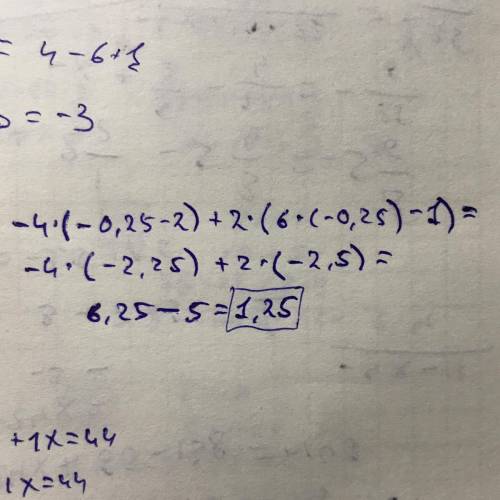 = 4 - 6 + 1
D = -3
-4·(-0,25-2) + 2·(6·(-0,25)-1) =
-4·(-2,25) + 2·(-2,5) =
6,25 - 5 = 1,25
+1x=44
1x=44